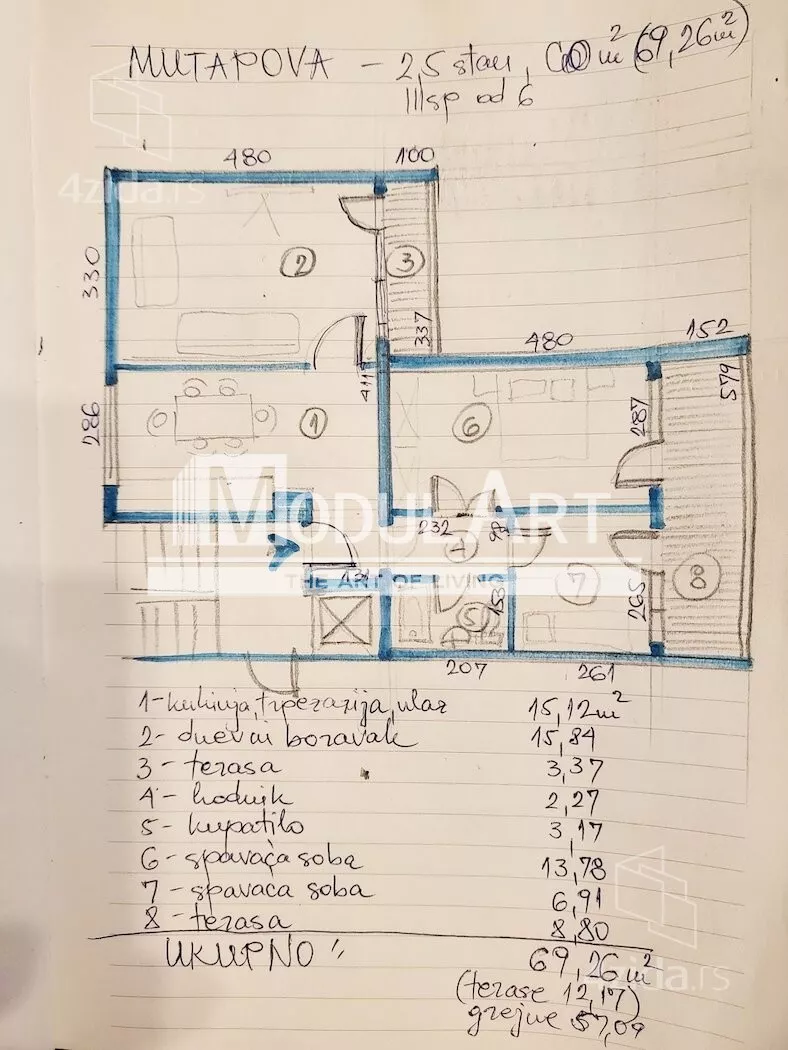 MUTAPOVA – 2,5 stan, 60 m² (69,26 m²)
III sp od 6
4zida.rs
480 100
330
2 3
337
480 152
579
411
286
1 6 287
MODULART
232 98
4
THE ART OF LIVING
131
153 7 265 8
5
207 261
1- kuhinja, trpezarija, ulaz 15,12 m²
2- dnevni boravak 15,84
3- terasa 3,37
4- hodnik 2,27
5- kupatilo 3,17
6- spavaća soba 13,78
7- spavaća soba 6,91
8- terasa 8,80
UKUPNO: 69,26 m²
4zida.rs
(terase 12,17)
grejne 57,09